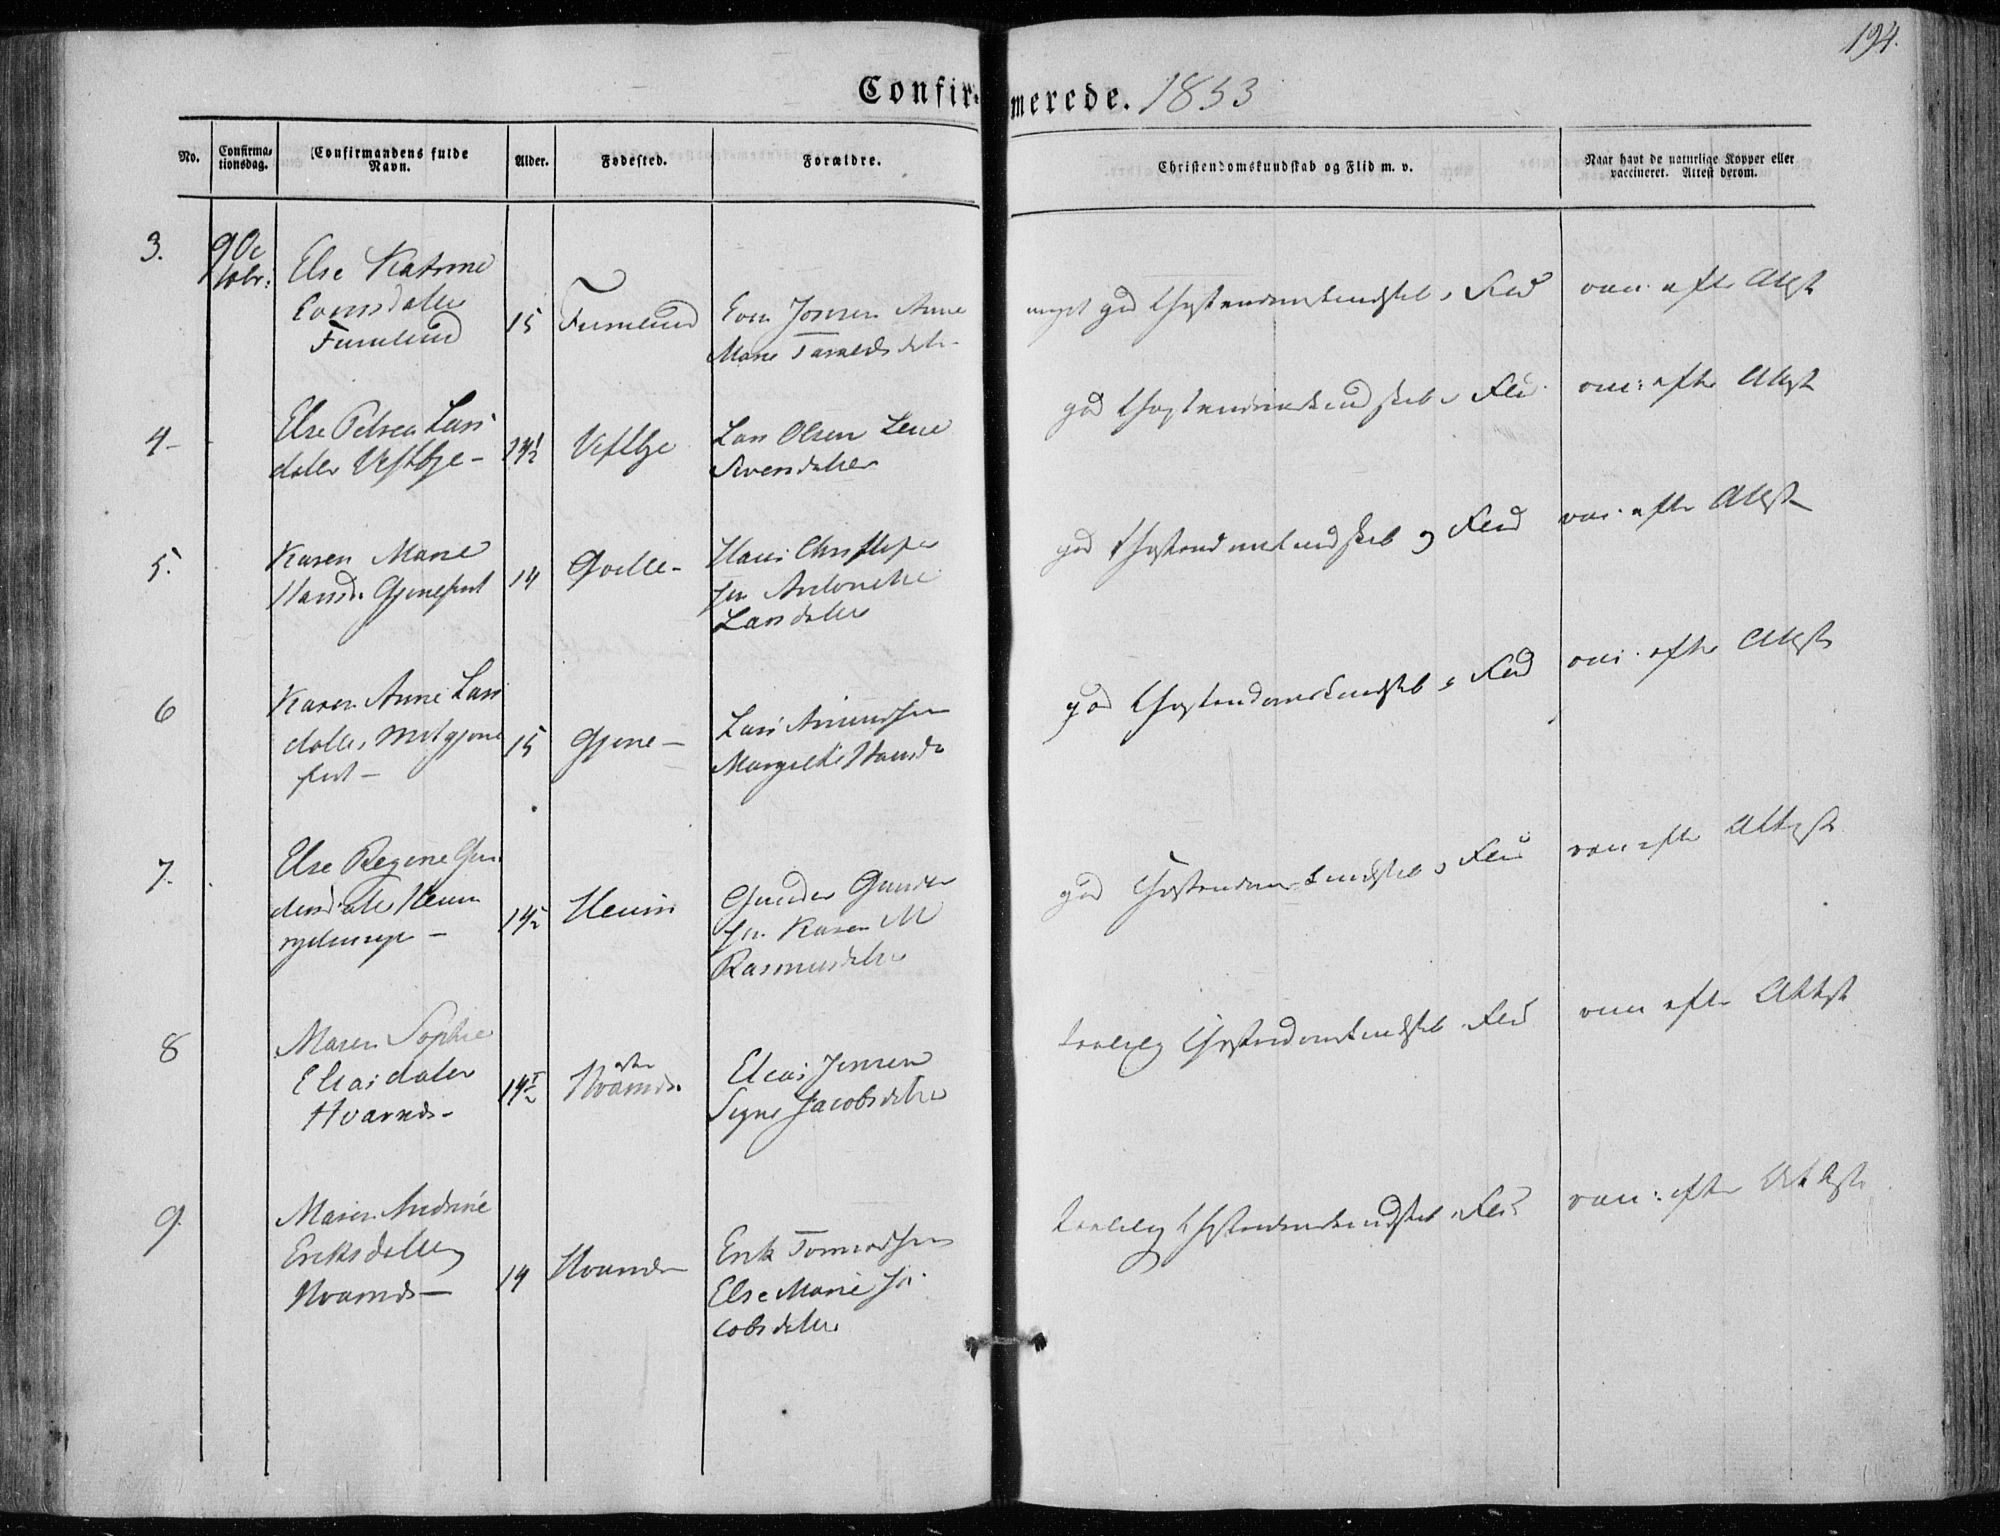 194.
Confirmerede. 1853
No.
Confirmationsdag.
Confirmandens fulde Navn.
Alder.
Fødested.
Forældre.
Christendomskundskab og Flid m. v.
Naar havt de naturlige Kopper eller
vaccineret. Attest derom.
3.
9 Oc
tobr:
Else Katrine
Evensdatter
Furulund
15
Furulund
Even Jonsen Anne
Marie
meget god Christendomskundskab & Flid
vac. efter Attest
4
Else Petrea Lars
datter Vestbye
14½
Vestbye
Lars Olsen Lene
Svensdatter
god Christendomskundskab & Flid
vac: efter Attest
5.
Karen Marie
Hansd.
14
Hans Christophe
sen Antonette
Larsdatter
god Christendomskundskab og Flid
vac. efter Attest
6
Karen Anne Lars
datter
15
Gjone
Lars Amundsen
Margrethe Hansd
god Christendomskundskab & Flid
vac. efter Attest
7.
Else Regine Gun
dersdatter
14½
Gunder Gunder
sen Karen M
Rasmusdatter
god Christendomskundskab & Flid
vac efter Attest
8
Maren Sophie
Eliasdatter
Hvarnds
14½
Elias Jensen
Signe Jacobsdatter
taalelig Christendomskundskab Flid
vac efter Attest
9.
Maren Andrine
Eriksdatter
14
Erik
Else Marie Ja
cobsdatter
taalelig Christendomskundskab Flid
vac: efter Attest